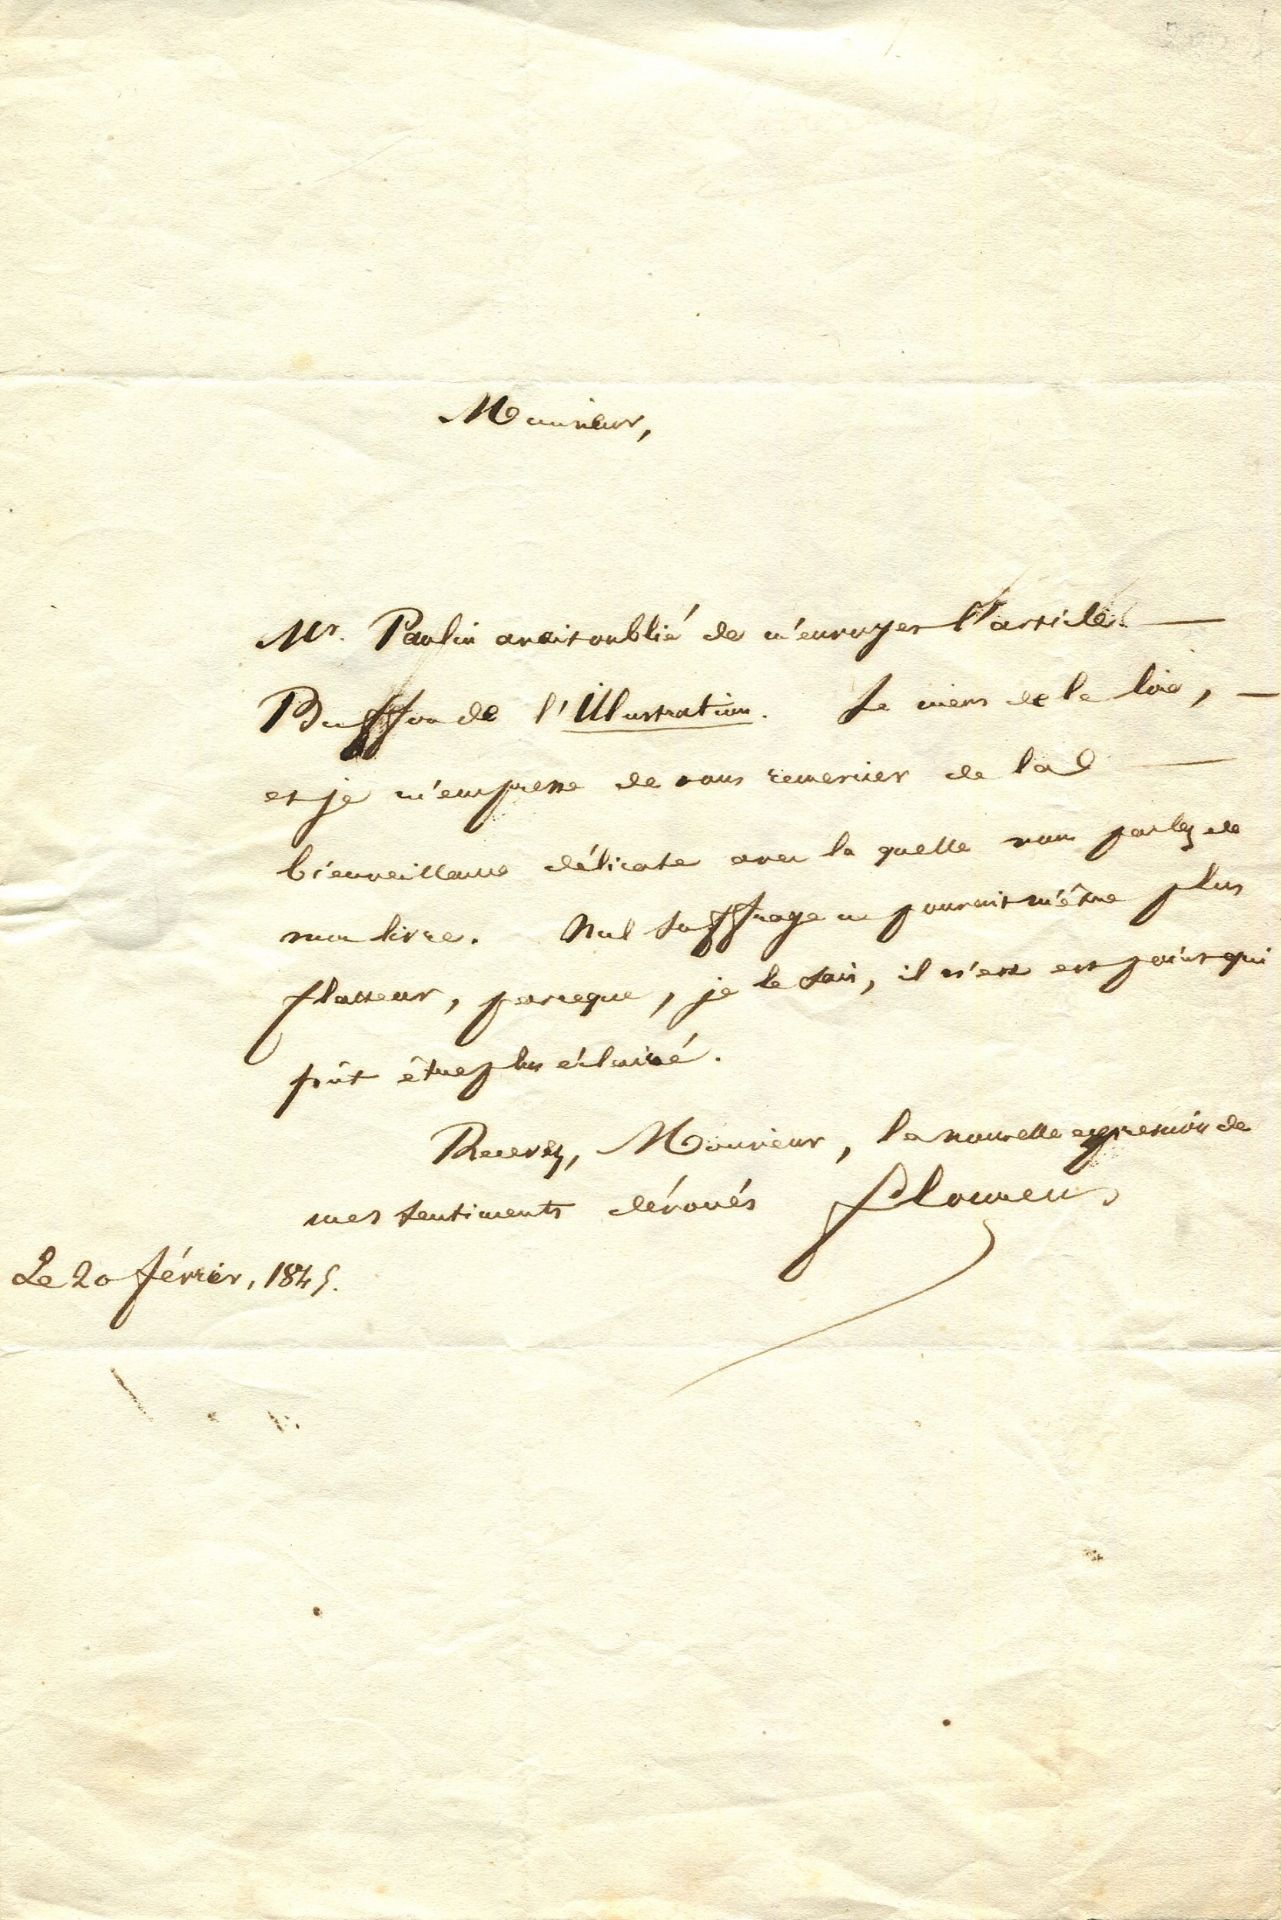 Monsieur,
Mr. Paulin avait oublié de m'envoyer l'article
Buffon de l'Illustration. Je viens de le lire,
et je m'empresse de vous remercier de la
bienveillance délicate avec la quelle vous parlez de
mon livre. Nul suffrage ne pouvait m'être plus
flatteur, parceque, je le sais, il n'en est point qui
pût être plus éclairé.
Recevez, Monsieur, la nouvelle expression de
mes sentiments dévoués Flourens
Le 20 février, 1845.